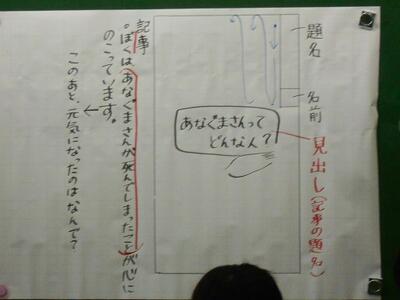 題名
名前
見出し(記事の題名)
あなぐまさんって
どんな人?
記事
。ぼくは(あなぐまさんが死んでしまったこと)が心に
のこっています。
このあと、元気になったのはなんで?